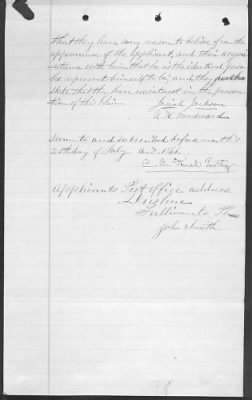 that they have every reason to believe from the
appearance of the applicant, and their acquain
tance with him that he is the identical person
he represent himself to be, and they further
state that they have no interest in the prosecu
tion of this claim.
Josiah Jackson
Sworn to and subscribed before me this
day of July A.D. 186
Applicants Post office address
Dushore
Sullivan Co Pa
John Smith